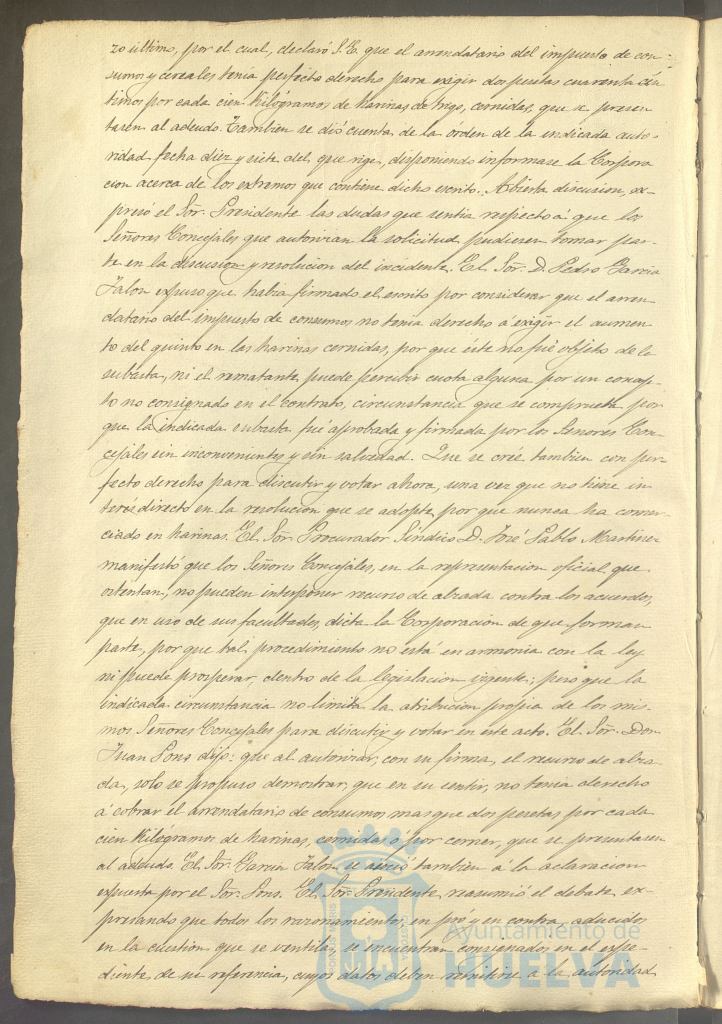 zo último, por el cual, declaró S.E. que el arrendatario del impuesto de con-
sumos y cereales tenia perfecto derecho para exigir dos pesetas cuarenta cén
timos por cada cien Kilógramos de harinas de trigo, cernidas, que se presen
tasen al adeudo. Tambien se dió cuenta de la órden de la indicada auto-
ridad fecha diez y siete del que rige, disponiendo informase la Corpora
cion acerca de los extremos que contiene dicho escrito. Abierta discusion, ex-
presó el Sor. Presidente las dudas que sentia respecto á que los
Señores Concejales que autorizan la solicitud pudiesen tomar par-
te en la discusion y resolucion del incidente. El Sor. D. Pedro Garcia
Jalon expuso que habia firmado el escrito por considerar que el arren-
datario del impuesto de consumos no tenia derecho á exigir el aumen-
to del quinto en las harinas cernidas, por que éste no fué objeto de la
subasta, ni el rematante puede percibir cuota alguna por un concep-
to no consignado en el contrato, circunstancia que se comprueba por
que la indicada subasta fué aprobada y firmada por los Señores Con-
cejales sin inconvenientes y sin salvedad. Que se cree tambien con per-
fecto derecho para discutir y votar ahora, una vez que no tiene in-
terés directo en la resolucion que se adopte, por que nunca ha comer-
ciado en harinas. El Sor. Procurador Síndico D. José Pablo Martinez
manifestó que los Señores Concejales, en la representacion oficial que
ostentan, no pueden interponer recurso de alzada contra los acuerdos,
que en uso de sus facultades, dicta la Corporacion de que forman
parte, por que tal procedimiento no está en armonia con la ley
ni puede prosperar, dentro de la legislacion vigente; pero que la
indicada circunstancia no limita la atribucion propia de los mis-
mos Señores Concejales para discutir y votar en este acto. El Sor. Don
Juan Pons dijo: que al autorizar, con su firma, el recurso de alza-
da, solo se propuso demostrar, que en su sentir, no tenia derecho
á cobrar el arrendatario de consumos mas que dos pesetas por cada
cien Kilógramos de harinas, cernidas ó por cerner, que se presentasen
al adeudo. El Sor. Garcia Jalon se asoció tambien á la aclaracion
expuesta por el Sor. Pons. El Sor. Presidente resumió el debate, ex-
presando que todos los razonamientos, en pró y en contra, aducidos
en la cuestion que se ventila, se encuentran consignados en el espe-
diente de su referencia, cuyos datos deben remitirse á la autoridad
Ayuntamiento de
HUELVA